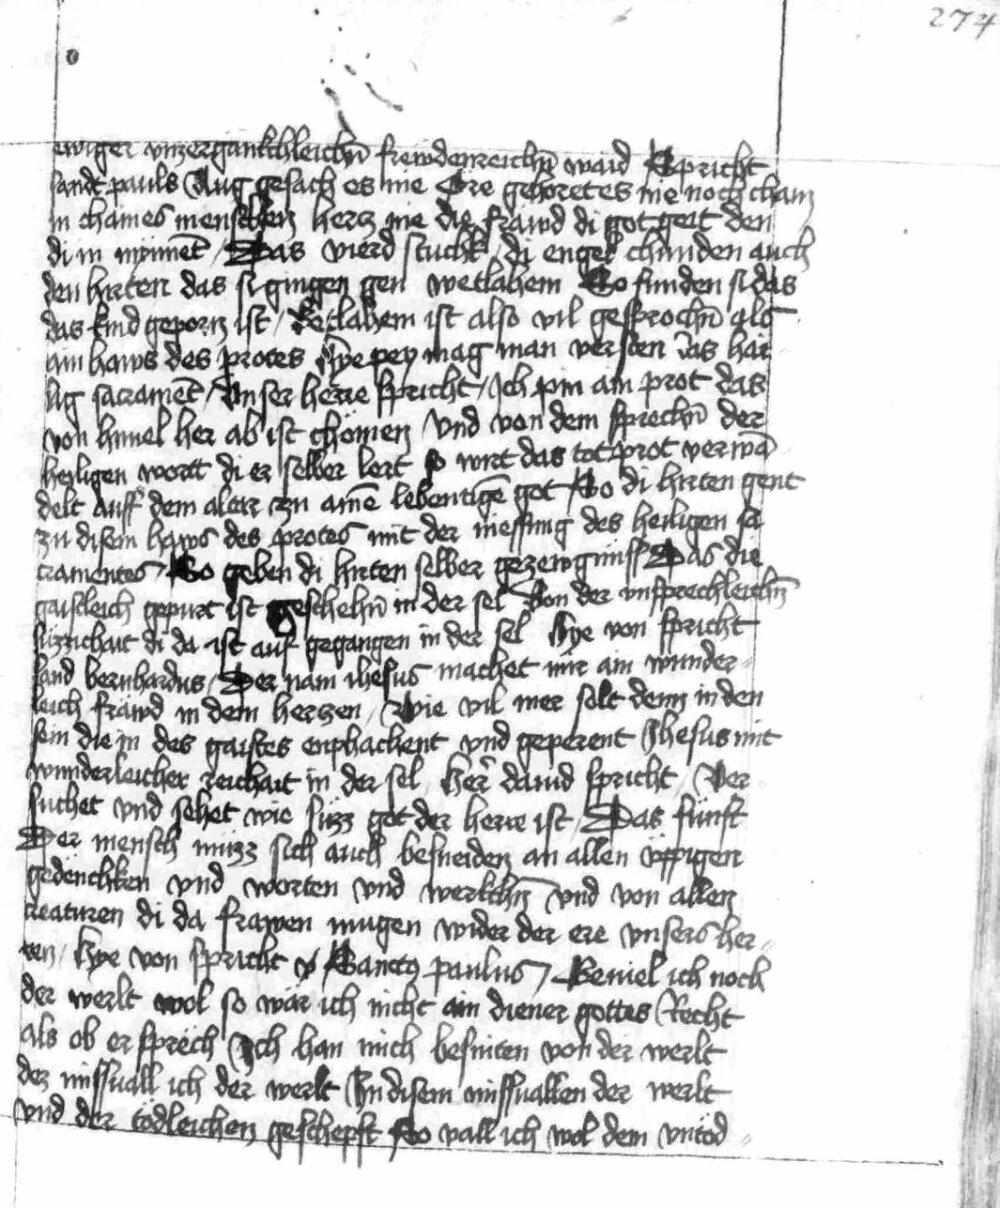 274
ewiger vnzergankchleichn̄ frewdenreichn̄ waid Spricht
sandt pauls Aug gesach es nie Ore gehoretes nie noch cham
in chaines menschen hercz nie die frawd di got geit den
di in mynnēt / Das vierd stuckh / di engel chunden auch
den hirten das si gingen gen wetlahem So funden si das
das kind geporn ist / Betlahem ist also vil gesprochn̄ als
ain haws des protes Hye pey mag man versten das hai
lig sacramēt / Vnser herre spricht / Ich pin ain prot das
von himel her ab ist chomen Vnd von dem sprechn̄ der
heyligen wortt di er selber lert so wirt das tot prot verwā
delt auff dem alter zu ainē lebentigē got / So di hirten gent
zu disem haws des protes mit der niessung des heiligen sa
cramentes / So geben di hirten selber gezewgnuss Das die
gaistleich gepurt ist geschehn̄ in der sel Von der vnsprechleichn̄
suzzichait di da ist auf gegangen in der sel Hye von spricht
sand bernhardus / Der nam ihesus machet mir ain wunder
leich fräwd in dem herczen / Wie vil mer solt denn in den
sein die in des gaistes enphachent vnd geperent Jhesus mit
wunderleicher reichait in der sel / Her dauid spricht / Ver
suchet vnd sehet wie süzz got der herre ist / Das fünft
Der mensch müzz sich auch besneiden an allen üppigen
gedenchken vnd worten vnd werkchn̄ vnd von allen
creaturen di da frawen mugen wider der ere vnsers her
ren / Hye von spricht Sanctus paulus / Geuiel ich noch
der werlt wol so wär ich nicht ain diener gottes Recht
als ob er spräch Ich han mich besniten von der werlt
der missuall ich der werlt In disem missuallen der werlt
vnd der tödleichen geschepft So vall ich wol dem vntod